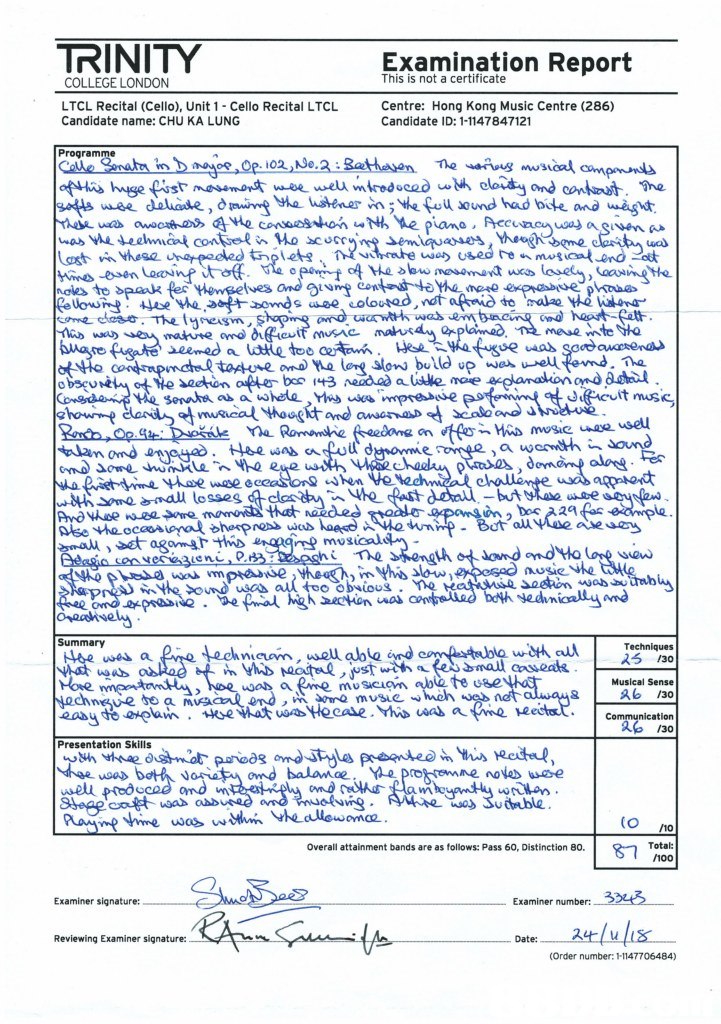 TRINITY
COLLEGE LONDON
Examination Report
This is not a certificate
LTCL Recital (Cello), Unit 1 - Cello Recital LTCL
Centre: Hong Kong Music Centre (286)
Candidate name: CHU KA LUNG
Candidate ID: 1-1147847121
Programme
Cello Sonata in D major, Op. 102, No. 2 : Beethoven The various musical components
of this huge first movement were well introduced with clarity and contrast. The
softs were delicate, drawing the listener in; the full sound had bite and weight.
There was awareness of the conversation with the piano. Accuracy was a given as
was the technical control in the scurrying semiquavers, though some clarity was
lost in those unexpected triplets. The vibrato was used to a musical end - at
times even leaving it off. The opening of the slow movement was lovely, leaving the
notes to speak for themselves and giving contrast to the more expressive phrases
following. Here the soft sounds were coloured, not afraid to make the listener
come closer. The lyricism, shaping and warmth was embracing and heart-felt.
This was very mature and difficult music maturely explained. The move into the
Allegro fugato seemed a little too certain. Here in the fugue was good awareness
of the contrapuntal texture and the long slow build up was well found. The
obscurity of the section after bar 143 needed a little more explanation and detail.
Considering the sonata as a whole, this was impressive performing of difficult music,
showing clarity of musical thought and awareness of scale and structure.
Rondo, Op. 94 : Dvořák The Romantic freedoms on offer in this music were well
taken and enjoyed. Here was a full dynamic range, a warmth in sound
and some twinkle in the eye with those cheeky phrases, dancing along. For
the first time there were occasions when the technical challenge was apparent
with some small losses of clarity in the fast detail - but these were very few.
And there were some moments that needed greater expansion, bar 229 for example.
Also the occasional sharpness was heard in the tuning. But all these are very
small, set against this engaging musicality.
Adagio con variazioni, P.133 : Respighi The strength of sound and the long view
of the phrases was impressive, though, in this slow, exposed music the little
sharpness in the sound was all too obvious. The recitative section was suitably
free and expressive. The final high section was controlled both technically and
creatively.
Summary
Here was a fine technician, well able and comfortable with all
that was asked of in this recital, just with a few small caveats.
More importantly, here was a fine musician able to use that
technique to a musical end, in some music which was not always
easy to explain. Here that was the case. This was a fine recital.
Techniques
25 /30
Musical Sense
26 /30
Communication
26 /30
Presentation Skills
With three distinct periods and styles presented in this recital,
there was both variety and balance. The programme notes were
well produced and interestingly and rather flamboyantly written.
Stage craft was assured and involving. Attire was suitable.
Playing time was within the allowance.
10 /10
Overall attainment bands are as follows: Pass 60, Distinction 80.
87 Total: /100
Examiner signature:
Examiner number: 3343
Reviewing Examiner signature:
Date: 24/11/18
(Order number: 1-1147706484)